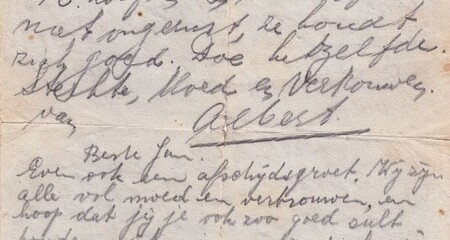 niet ongerust, ze houdt
zich goed. Doe hetzelfde.
Sterkte, Moed en Vertrouwen.
van
Albert.
Beste Jan.
Even ook een afscheidsgroet. Wy zyn
alle vol moed en vertrouwen, en
hoop dat jij je ook zoo goed sult